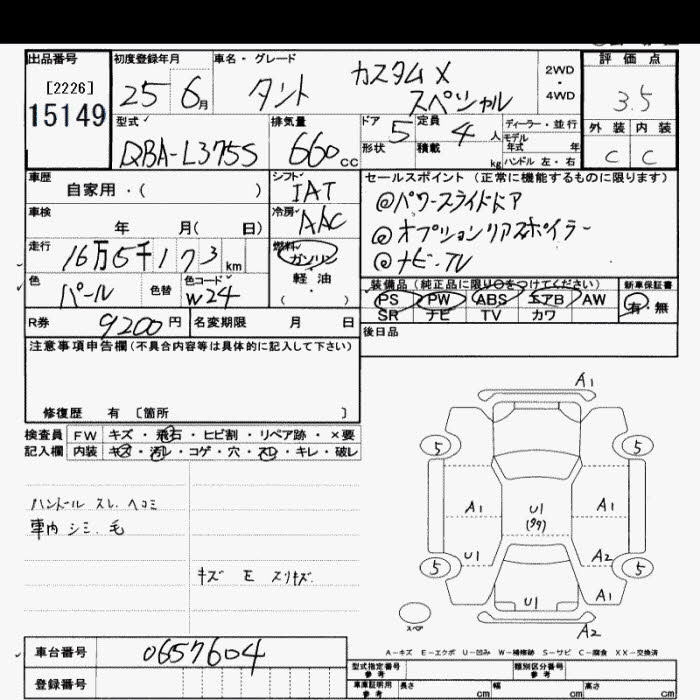 出品番号
[2226]
15149
初度登録年月
25 6月
車名・グレード
タント カスタムX
スペシャル
2WD
・
4WD
評価点
3.5
型式
DBA-L375S
排気量
660cc
ドア 5
形状
定員 4人
積載 kg
ディーラー・並行
モデル
年式 年
ハンドル 左・右
外装 内装
C C
車歴
自家用・( )
シフト
IAT
車検
年 月( 日)
冷房
AAC
走行
16万5千173km
燃料
ガソリン
軽油
( )
色
パール
色替
色コード
W24
セールスポイント(正常に機能するものに限ります)
@パワースライドドア
@オプションリアスポイラー
@ナビ・TV
装備品(純正品に限り○をつけてください)
PS PW ABS エアB AW
SR ナビ TV カワ
新車保証書
有・無
R券 9200円
名変期限 月 日
後日品
注意事項申告欄(不具合内容等は具体的に記入して下さい)
修復歴 有 〔箇所 〕
検査員 FW キズ・飛石・ヒビ割・リペア跡・×要
記入欄 内装 キズ・汚レ・コゲ・穴・スレ・キレ・破レ
ハンドル スレ ヘコミ
車内 シミ、毛
キズ E スリキズ
A1
5 5
A1 U1 A1
(タタ)
U1 A2
5 5
U1 A1
スペア
A2
A-キズ E-エクボ U-凹み W-補修跡 S-サビ C-腐食 XX-交換済
車台番号 0657604
登録番号
型式指定番号
参考
類別区分番号
参考
車庫証明用
参考
長さ cm 幅 cm 高さ cm